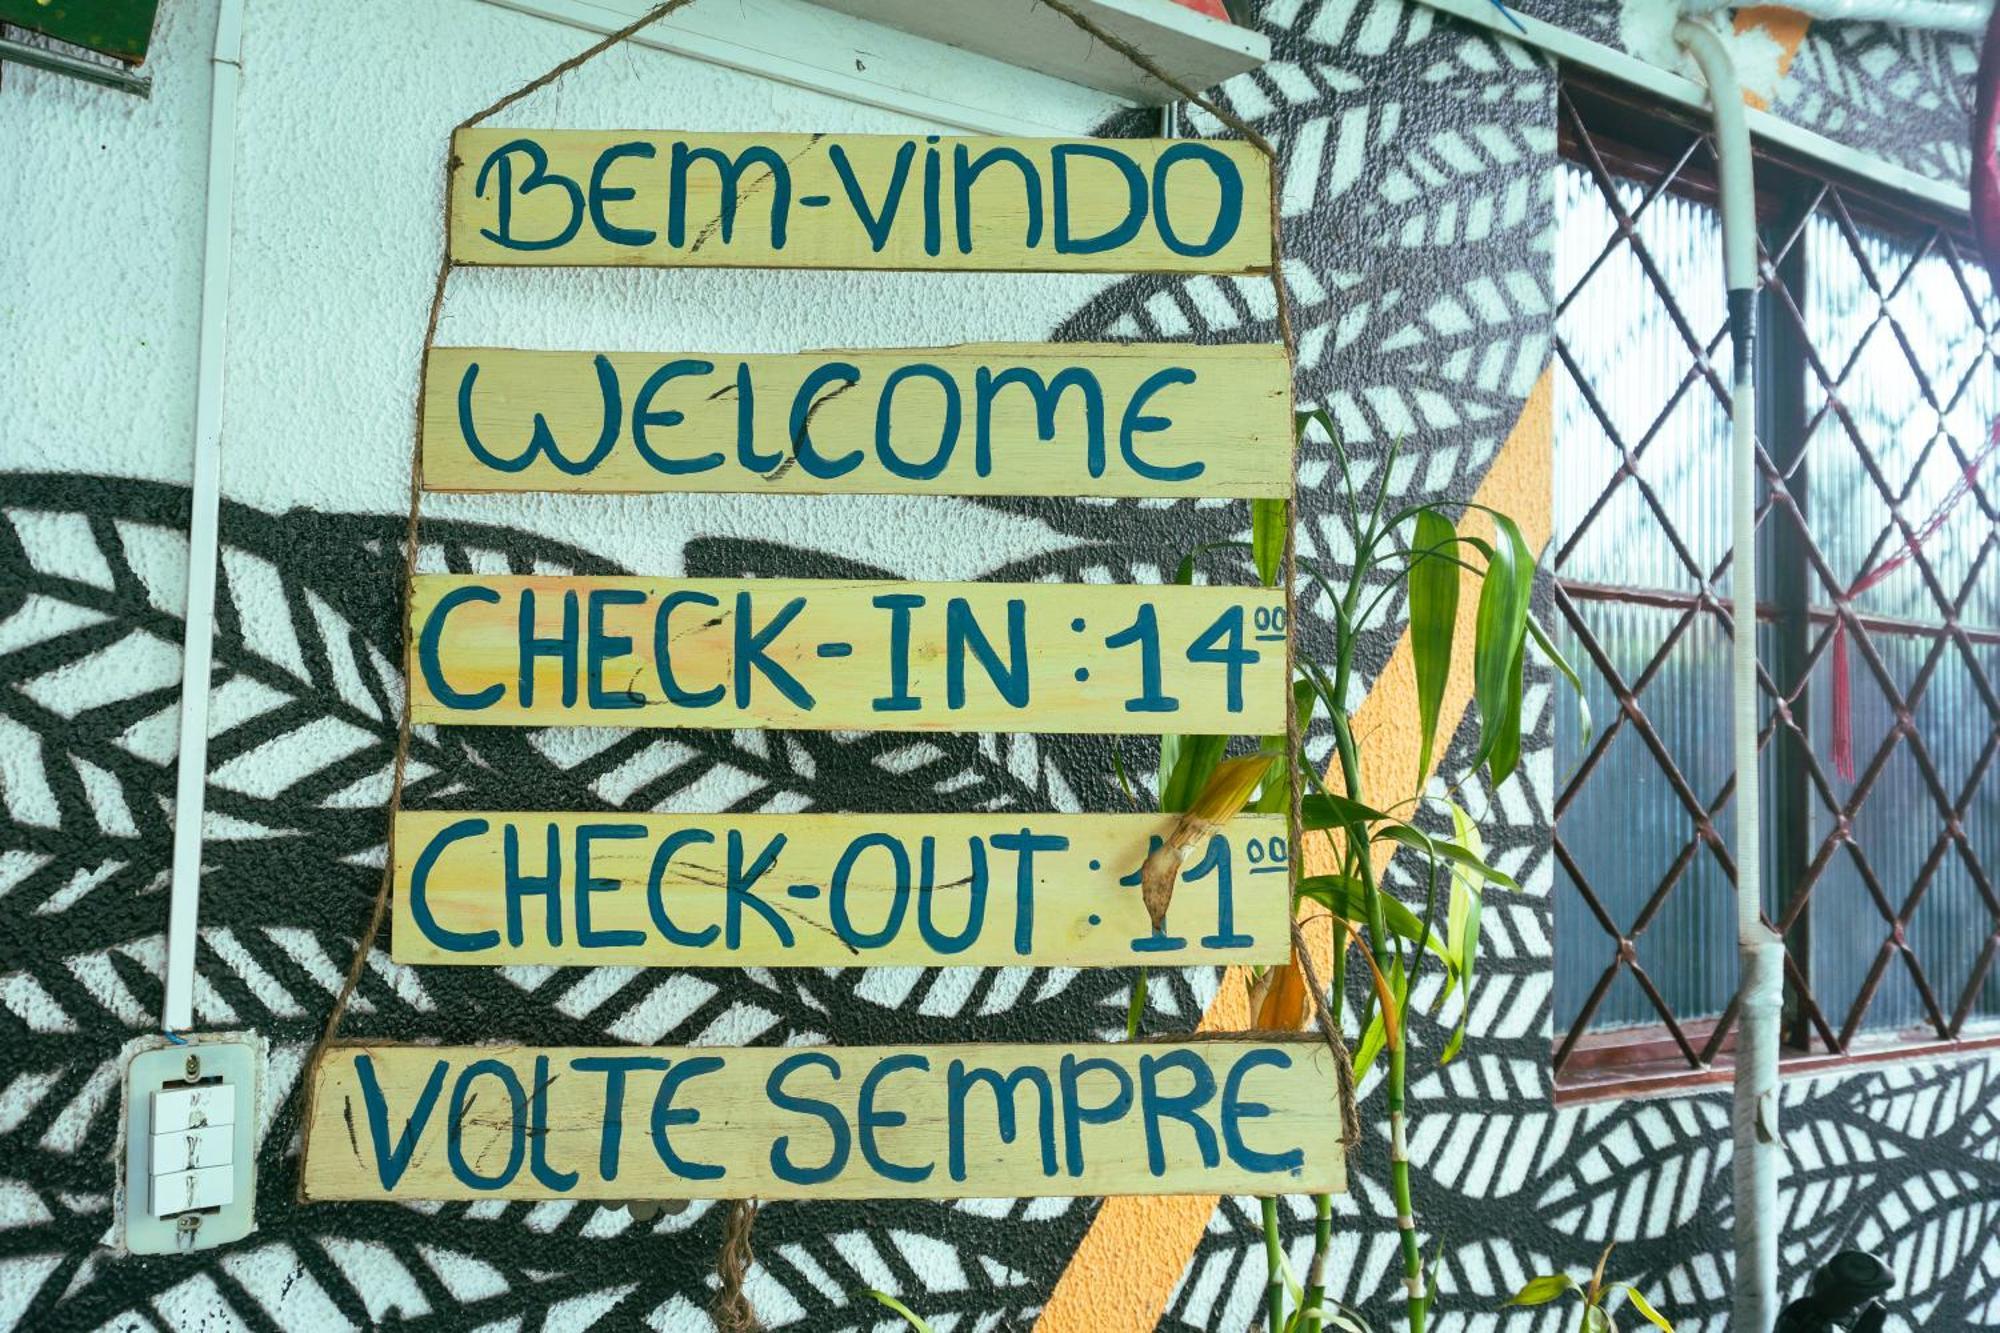 BEM-VINDO
WELCOME
CHECK-IN :14 00
CHECK-OUT : 11 00
VOLTE SEMPRE